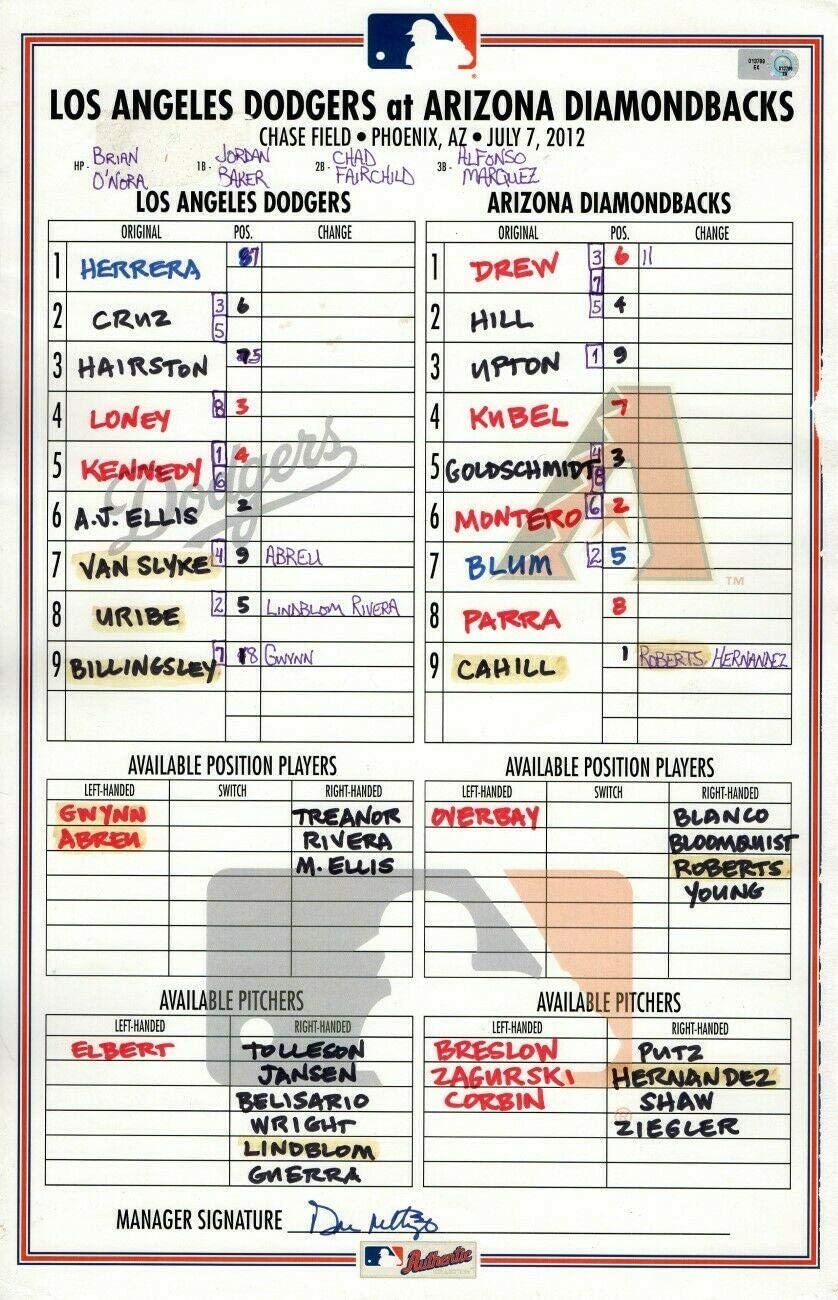 010799
EK
LOS ANGELES DODGERS at ARIZONA DIAMONDBACKS
CHASE FIELD • PHOENIX, AZ • JULY 7, 2012
HP - BRIAN O'NORA 1B - JORDAN BAKER 2B - CHAD FAIRCHILD 3B - ALFONSO MARQUEZ
LOS ANGELES DODGERS
ORIGINAL POS. CHANGE
1 HERRERA 7
2 CRUZ 3 5 6
3 HAIRSTON 5
4 LONEY 8 3
5 KENNEDY 1 6 4
6 A.J. ELLIS 2
7 VAN SLYKE 4 9 ABREU
8 URIBE 2 5 LINDBLOM RIVERA
9 BILLINGSLEY 7 8 GWYNN
ARIZONA DIAMONDBACKS
ORIGINAL POS. CHANGE
1 DREW 3 7 6 11
2 HILL 5 4
3 UPTON 1 9
4 KUBEL 7
5 GOLDSCHMIDT 4 8 3
6 MONTERO 6 2
7 BLUM 2 5
8 PARRA 8
9 CAHILL 1 ROBERTS HERNANDEZ
TM
AVAILABLE POSITION PLAYERS
LEFT-HANDED SWITCH RIGHT-HANDED
GWYNN TREANOR
ABREU RIVERA
M. ELLIS
AVAILABLE POSITION PLAYERS
LEFT-HANDED SWITCH RIGHT-HANDED
OVERBAY BLANCO
BLOOMQUIST
ROBERTS
YOUNG
AVAILABLE PITCHERS
LEFT-HANDED RIGHT-HANDED
ELBERT TOLLESON
JANSEN
BELISARIO
WRIGHT
LINDBLOM
GUERRA
AVAILABLE PITCHERS
LEFT-HANDED RIGHT-HANDED
BRESLOW PUTZ
ZAGURSKI HERNANDEZ
CORBIN SHAW
ZIEGLER
MANAGER SIGNATURE
Authentic
Dodgers